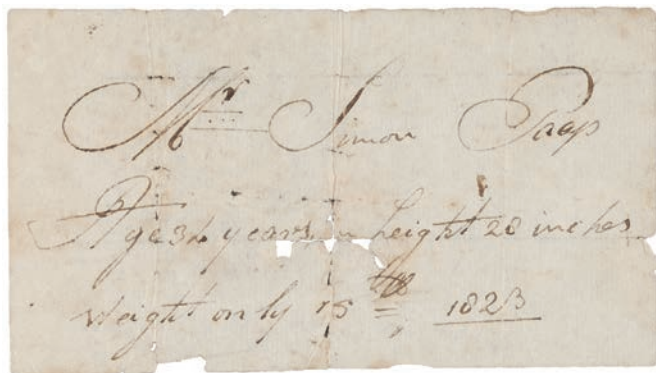 Mr Simon Paap
Age 34 years in height 28 inches
Weight only 15 lb 1823